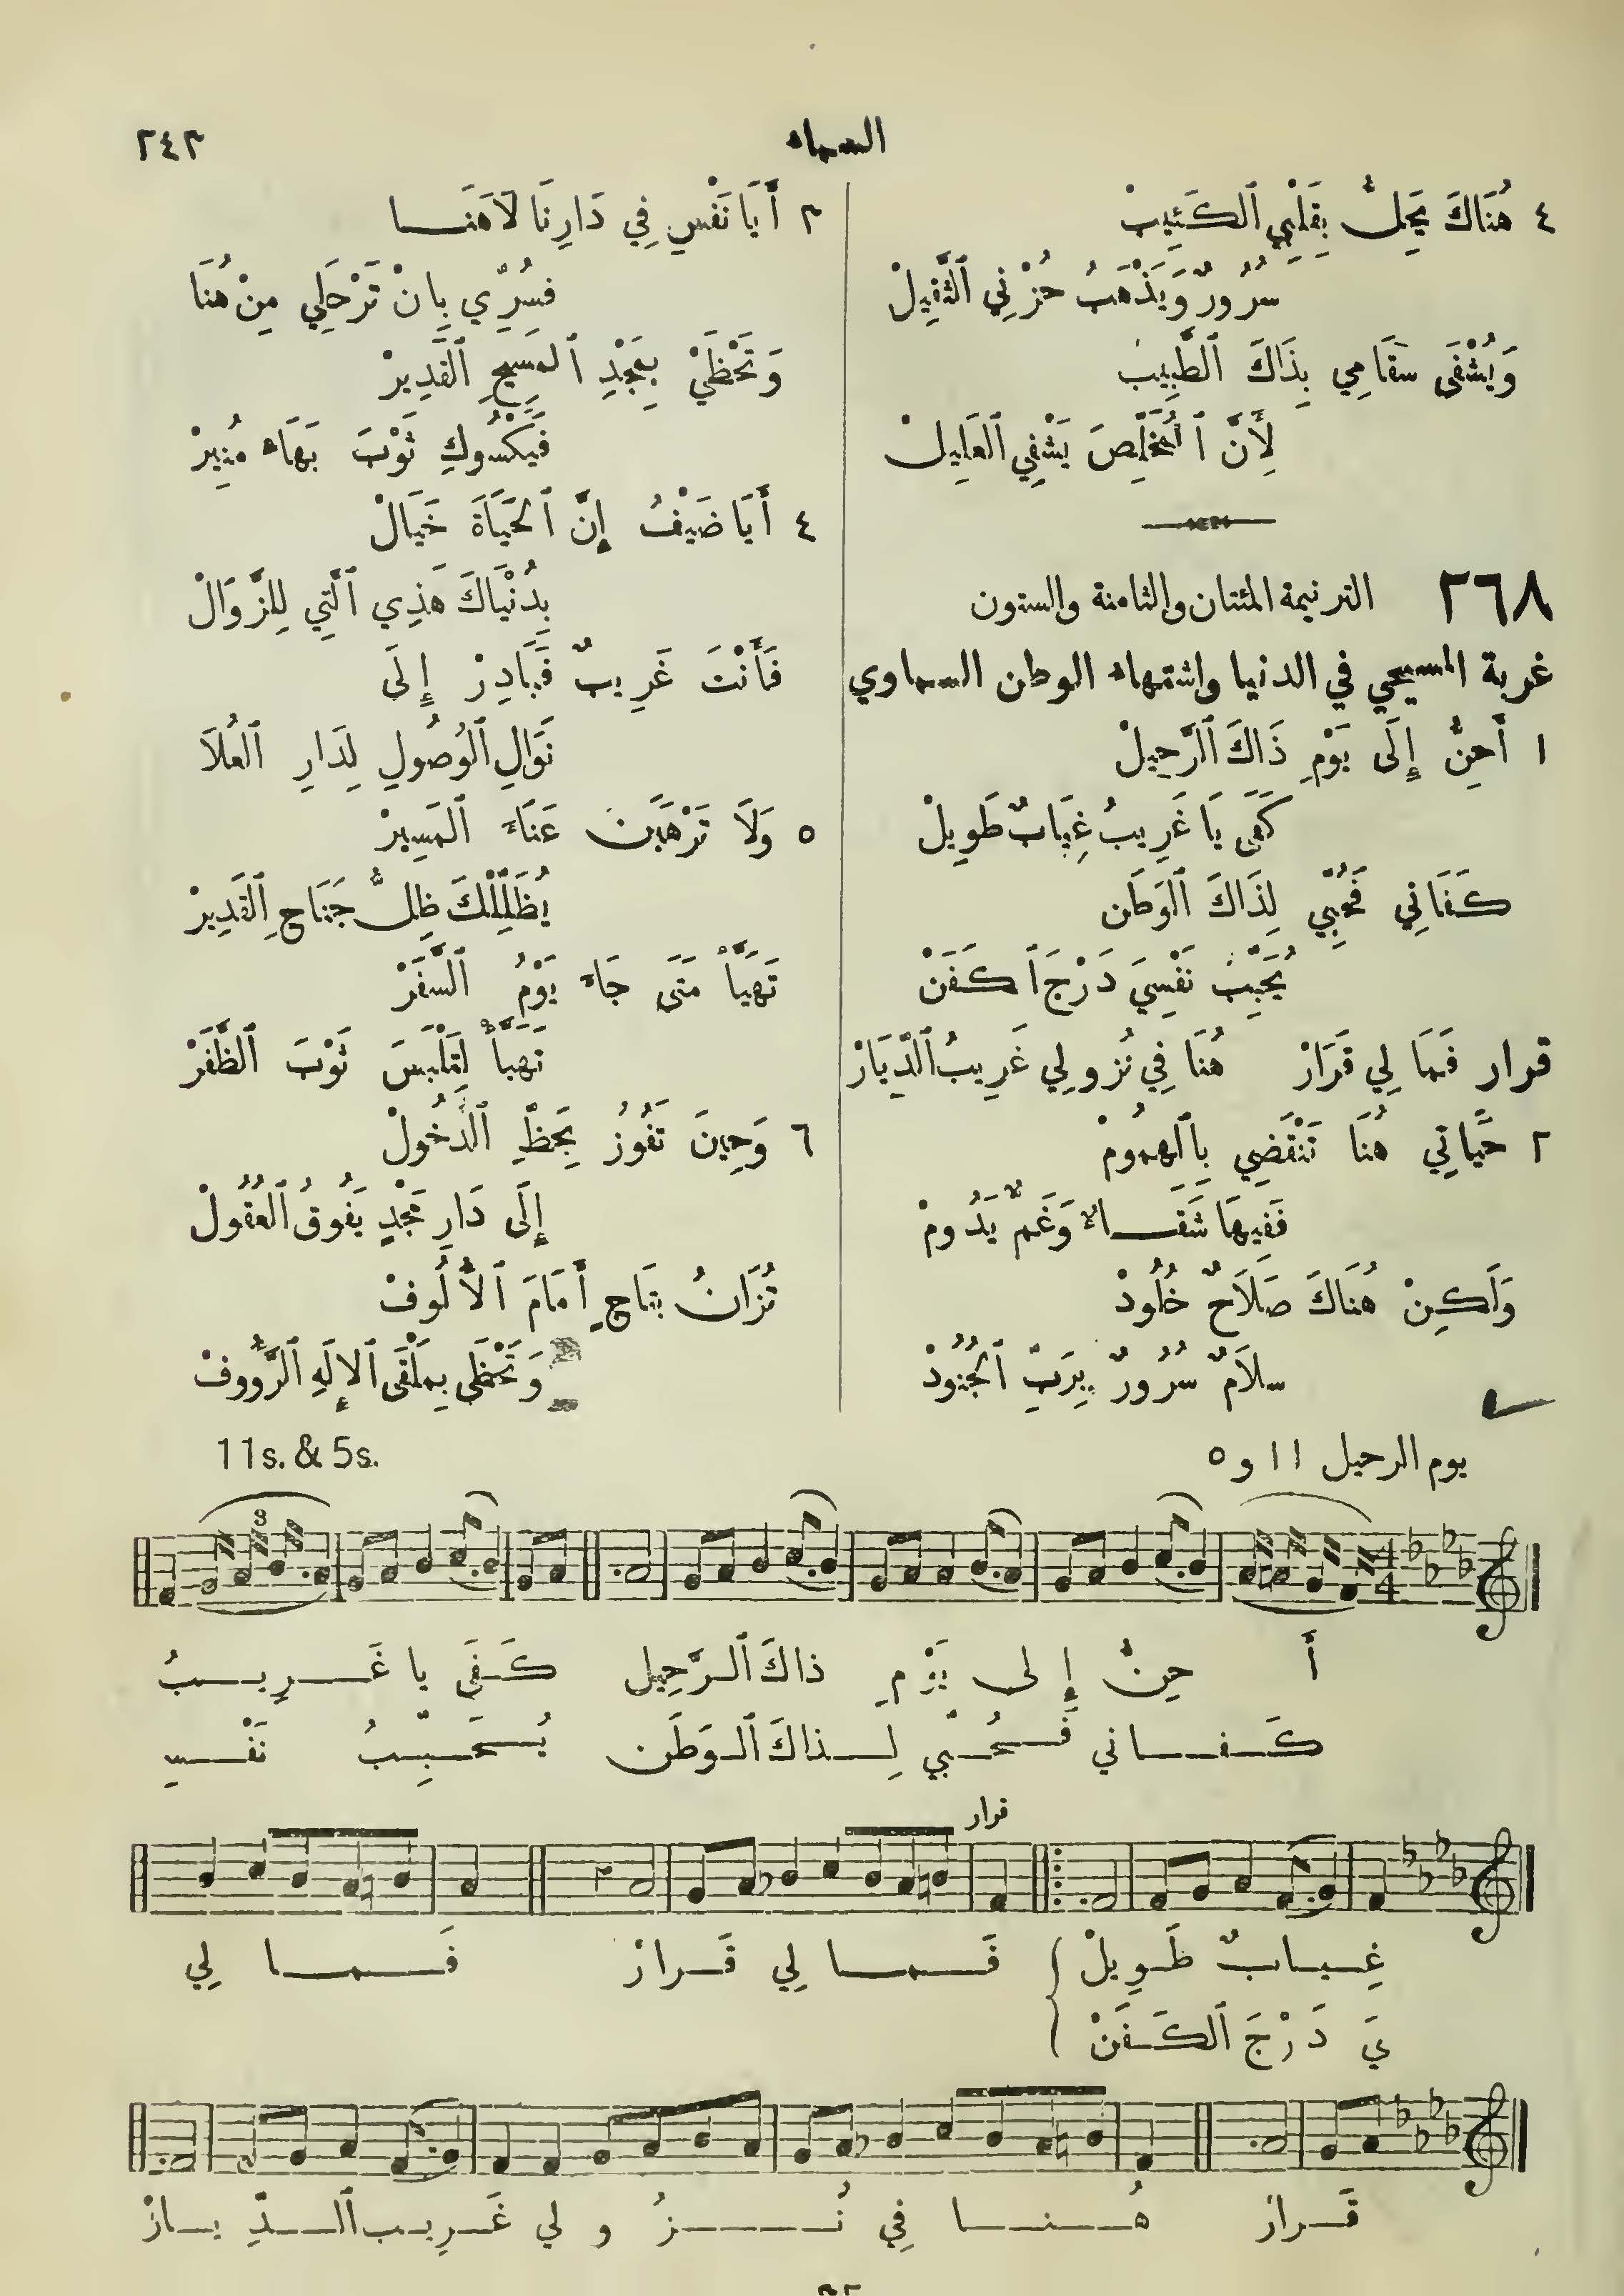 السماء
٢٤٣
٤ هُنَاكَ يَحِلُّ بِقَلْبِي ٱلكَئِيبْ
سُرُورٌ وَيَذْهَبُ حُزْنِي ٱلثَّقِيلْ
وَيُشْفَى سَقَامِي بِذَاكَ ٱلطَّبِيبْ
لِأَنَّ ٱلمُخَلِّصَ يَشْفِي ٱلعَلِيلْ
٢٦٨ الترنيمة المئتان والثامنة والستون
غربة المسيحي في الدنيا واشتهاء الوطن السماوي
١ أَحِنُّ إِلَى يَوْمِ ذَاكَ ٱلرَّحِيلْ
كَفَى يَا غَرِيبُ غِيَابٌ طَوِيلْ
كَفَانِي فَحُبِّي لِذَاكَ ٱلوَطَن
يُحَبِّبُ نَفْسِيَ دَرْجَ ٱلكَفَنْ
قرار فَمَا لِي قَرَارْ هُنَا فِي نُزولِي غَرِيبُ ٱلدِّيَارْ
٢ حَيَاتِي هُنَا تَنْقَضِي بِٱلهمُومْ
فَفِيهَا شَقَاءٌ وَغَمٌّ يَدُومْ
وَلَكِنْ هُنَاكَ صَلَاحٌ خُلُودْ
سلَامٌ سُرُورٌ بِرَبِّ ٱلجُنُودْ
٣ أَيَا نَفْسِ فِي دَارِنَا لَا هَنَا
فَسُرِّي بِانْ تَرْحَلِي مِنْ هُنَا
وَتَحْظَيْ بِمَجْدِ ٱلمَسِيحِ ٱلقَدِيرْ
فَيَكْسُوكِ ثَوْبَ بَهَاءٍ مُنِيرْ
٤ أَيَا ضَيْفُ إِنَّ ٱلحَيَاةَ خَيَالْ
بِدُنْيَاكَ هَذِي ٱلَّتِي لِلزَّوَالْ
فَأَنْتَ غَرِيبٌ فَبَادِرْ إِلَى
نَوَالِ ٱلوُصُولِ لِدَارِ ٱلعُلَا
٥ وَلَا تَرْهَبَن عَنَاءَ ٱلمَسِيرْ
يُظَلِّلْكَ ظِلُّ جَنَاحِ ٱلقَدِيرْ
تَهَيَّأْ مَتَى جَاءَ يَوْمُ ٱلسَّفَرْ
تَهَيَّأْ لِتَلْبَسَ ثَوْبَ ٱلظَّفَرْ
٦ وَحِينَ تَفُوزُ بِحَظِّ ٱلدُّخُولْ
إِلَى دَارِ مَجْدٍ يَفُوقُ ٱلعُقُولْ
تُزَانُ بِتَاجٍ أَمَامَ ٱلأُلُوفْ
وَتَحْظَى بِمَلْقَى ٱلإِلَهِ ٱلرَّؤُوفْ
يوم الرحيل ١١ و ٥
11s. & 5s.
أَ حِنُّ إِلى يَوْمِ ذاكَ ٱلرَّحِيل كَفَى يا غَرِيبُ
كَفاني فَحُبّي لِذاكَ ٱلوَطَن يُحَبِّبُ نَفْسِ
قرار
غِيابٌ طَوِيلْ فَما لِي قَرارْ فَما لِي
يَ دَرْجَ ٱلكَفَنْ
قَرارْ هُنا فِي نُزُولي غَرِيب ٱلدِّيارْ